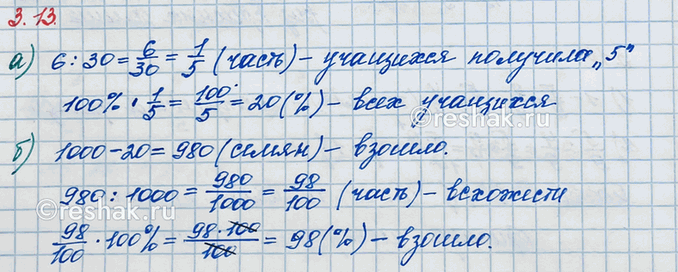 3.13.
а) 6 : 30 = 6/30 = 1/5 (часть) – учащихся получила „5"
100% · 1/5 = 100/5 = 20 (%) – всех учащихся
б) 1000 – 20 = 980 (семян) – взошло.
980 : 1000 = 980/1000 = 98/100 (часть) – всхожести
98/100 · 100% = 98·100/100 = 98 (%) – взошло.
©reshak.ru